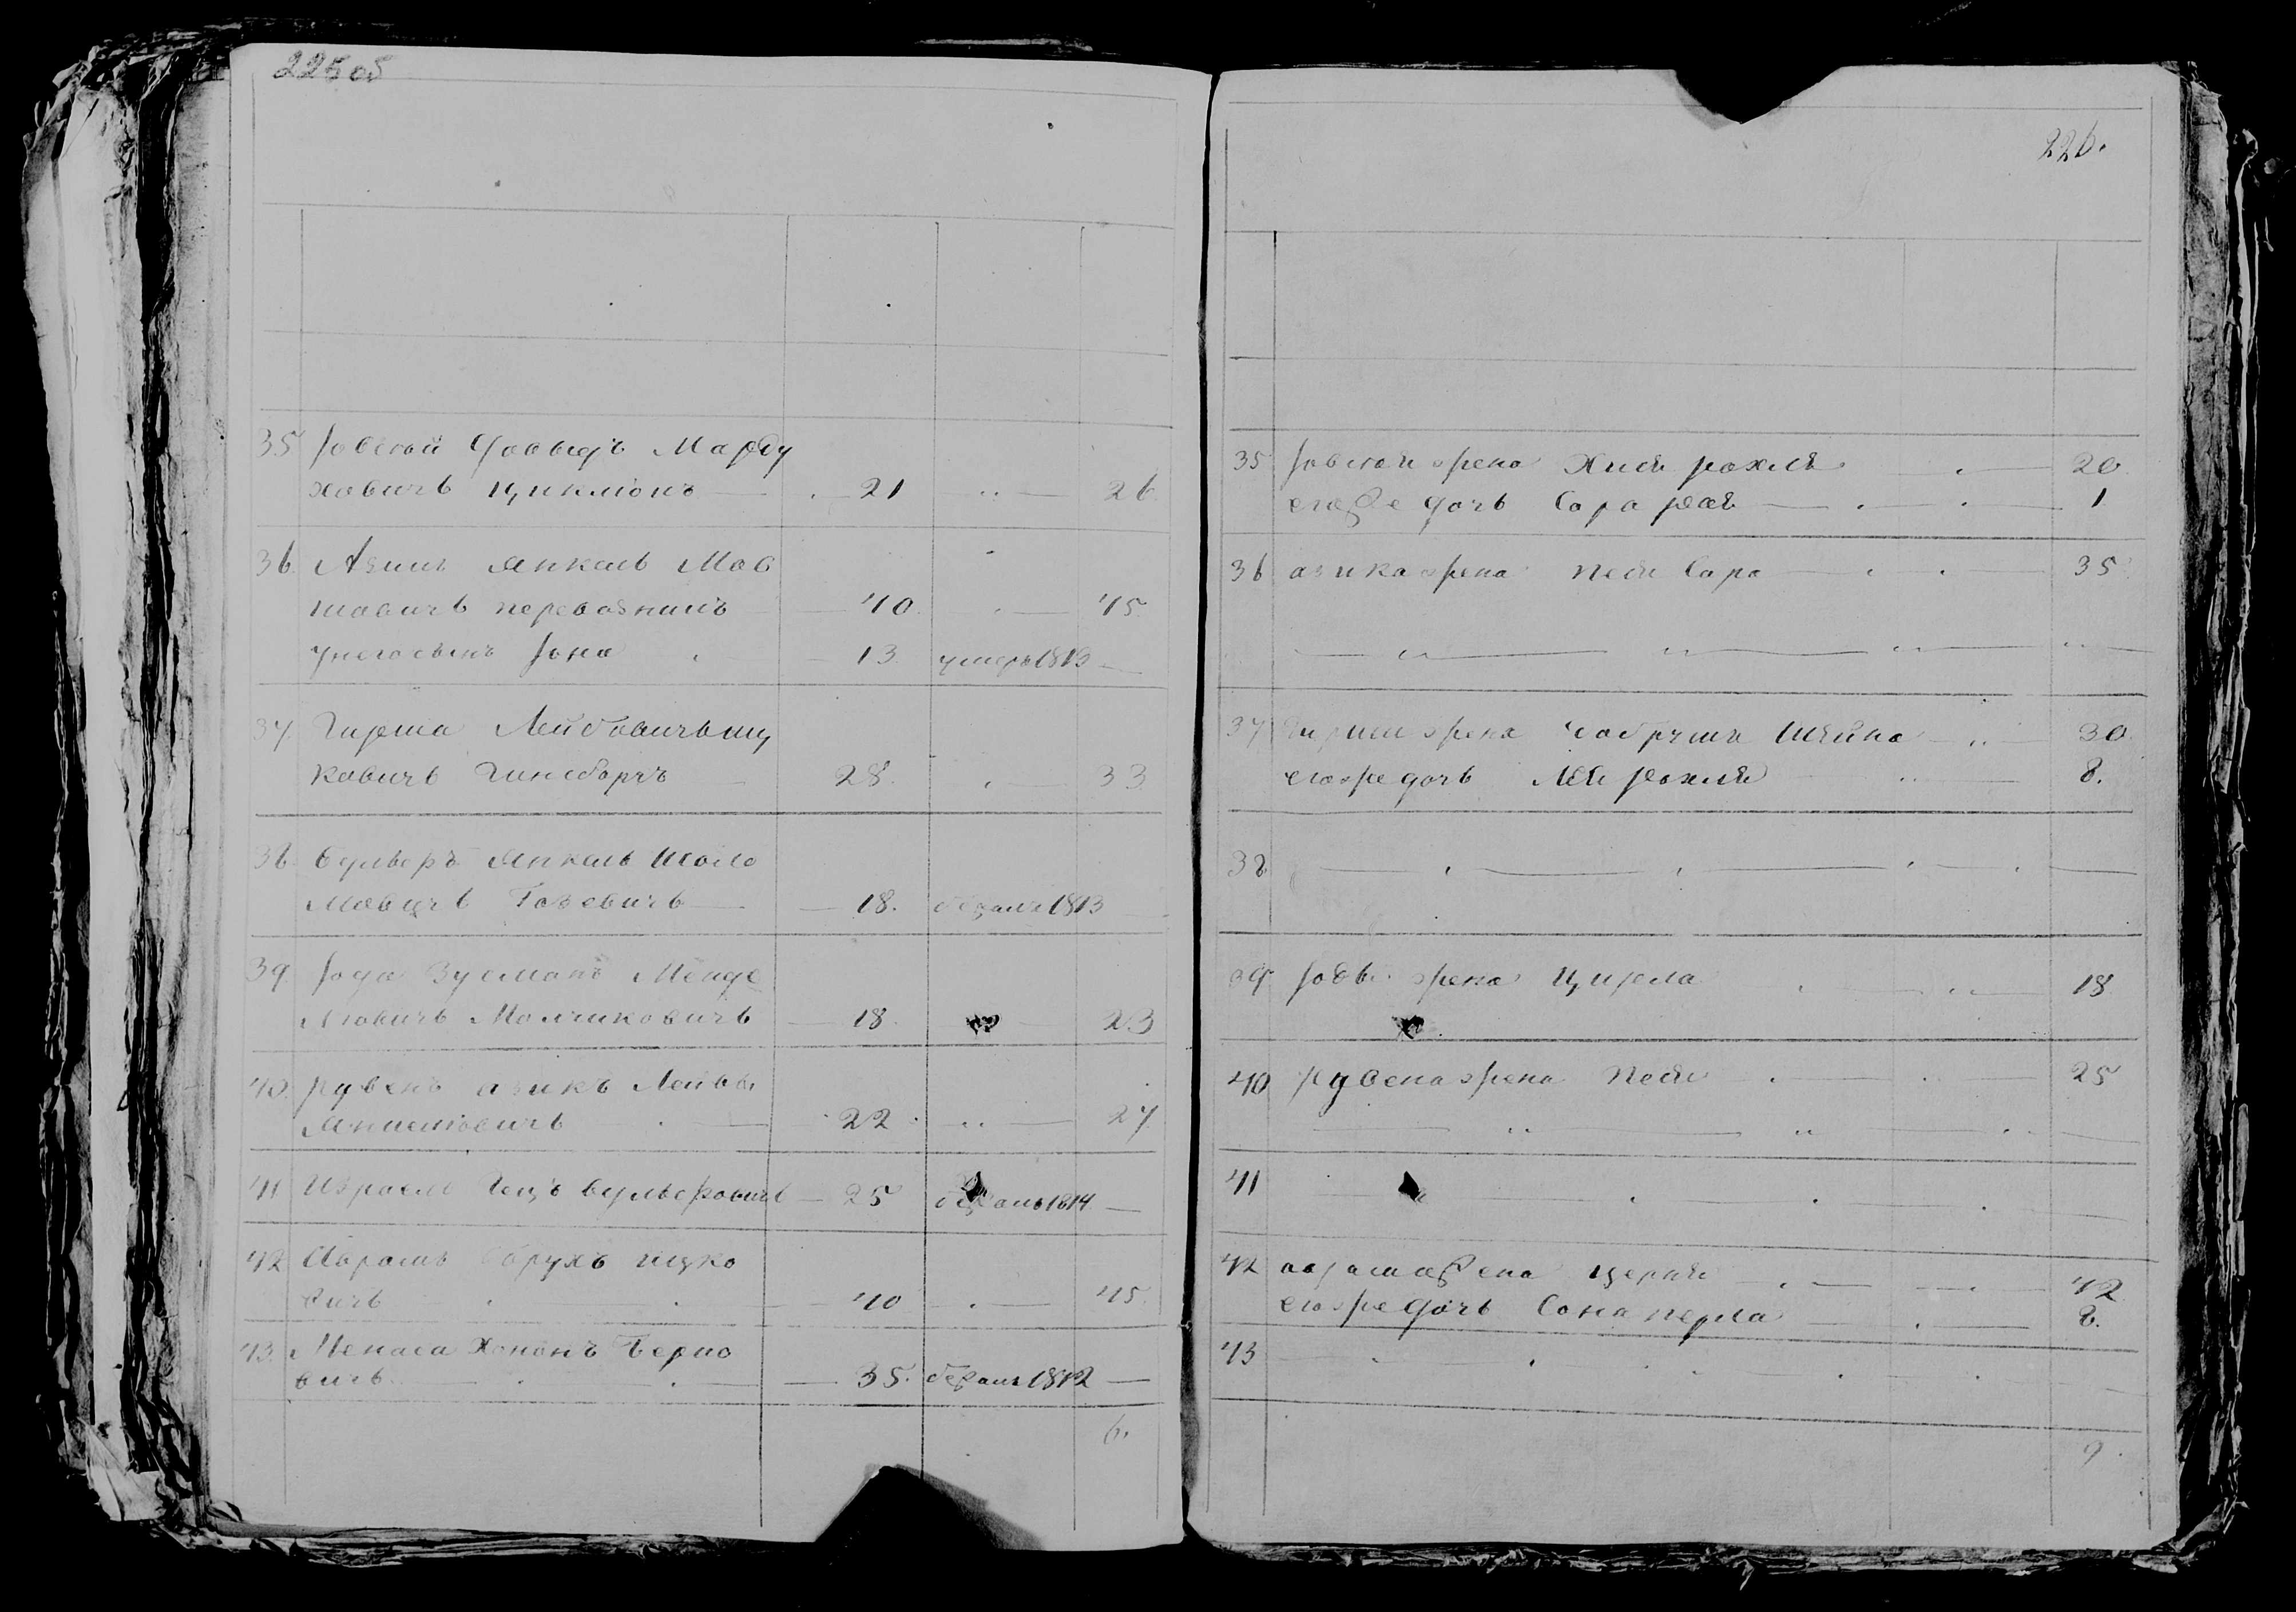 225 об
35 Іовсей Давидъ Марду
ховичъ Циклюнъ 21 26
36 Азикъ Янкель Мов
шовичъ 40 45
У него сынъ Іона 13 умеръ 1813
37 Гирша Лейбовичъ Иц
ковичъ Гинсборгъ 28 33
38 Вульфъ Янкель Шоло
мовичъ 18. бежалъ 1813
39 Іода Зусманъ Менде
левичъ 18 23
40 Рувенъ Азикъ Лейбы
22 27
41 Израель Гецъ Вульфовичъ 25 бежалъ 1814
42 Абрамъ Борухъ Ицко
вичъ 40 45
43 Менаса Хононъ Берко
вичъ 35. бежалъ 1812
6.
226.
35 Іовсея жена Хися Рохля 20
его же дочь Сора 1
36 Азика жена Песя Сора 35
37 Гирши жена Добруша Шейна 30
его же дочь Лея Рохля 8.
38
39 жена Цирла 18
40 Рувена жена Песя 25
41
42 Абрама жена 42
его же дочь Перла 8.
43
9.